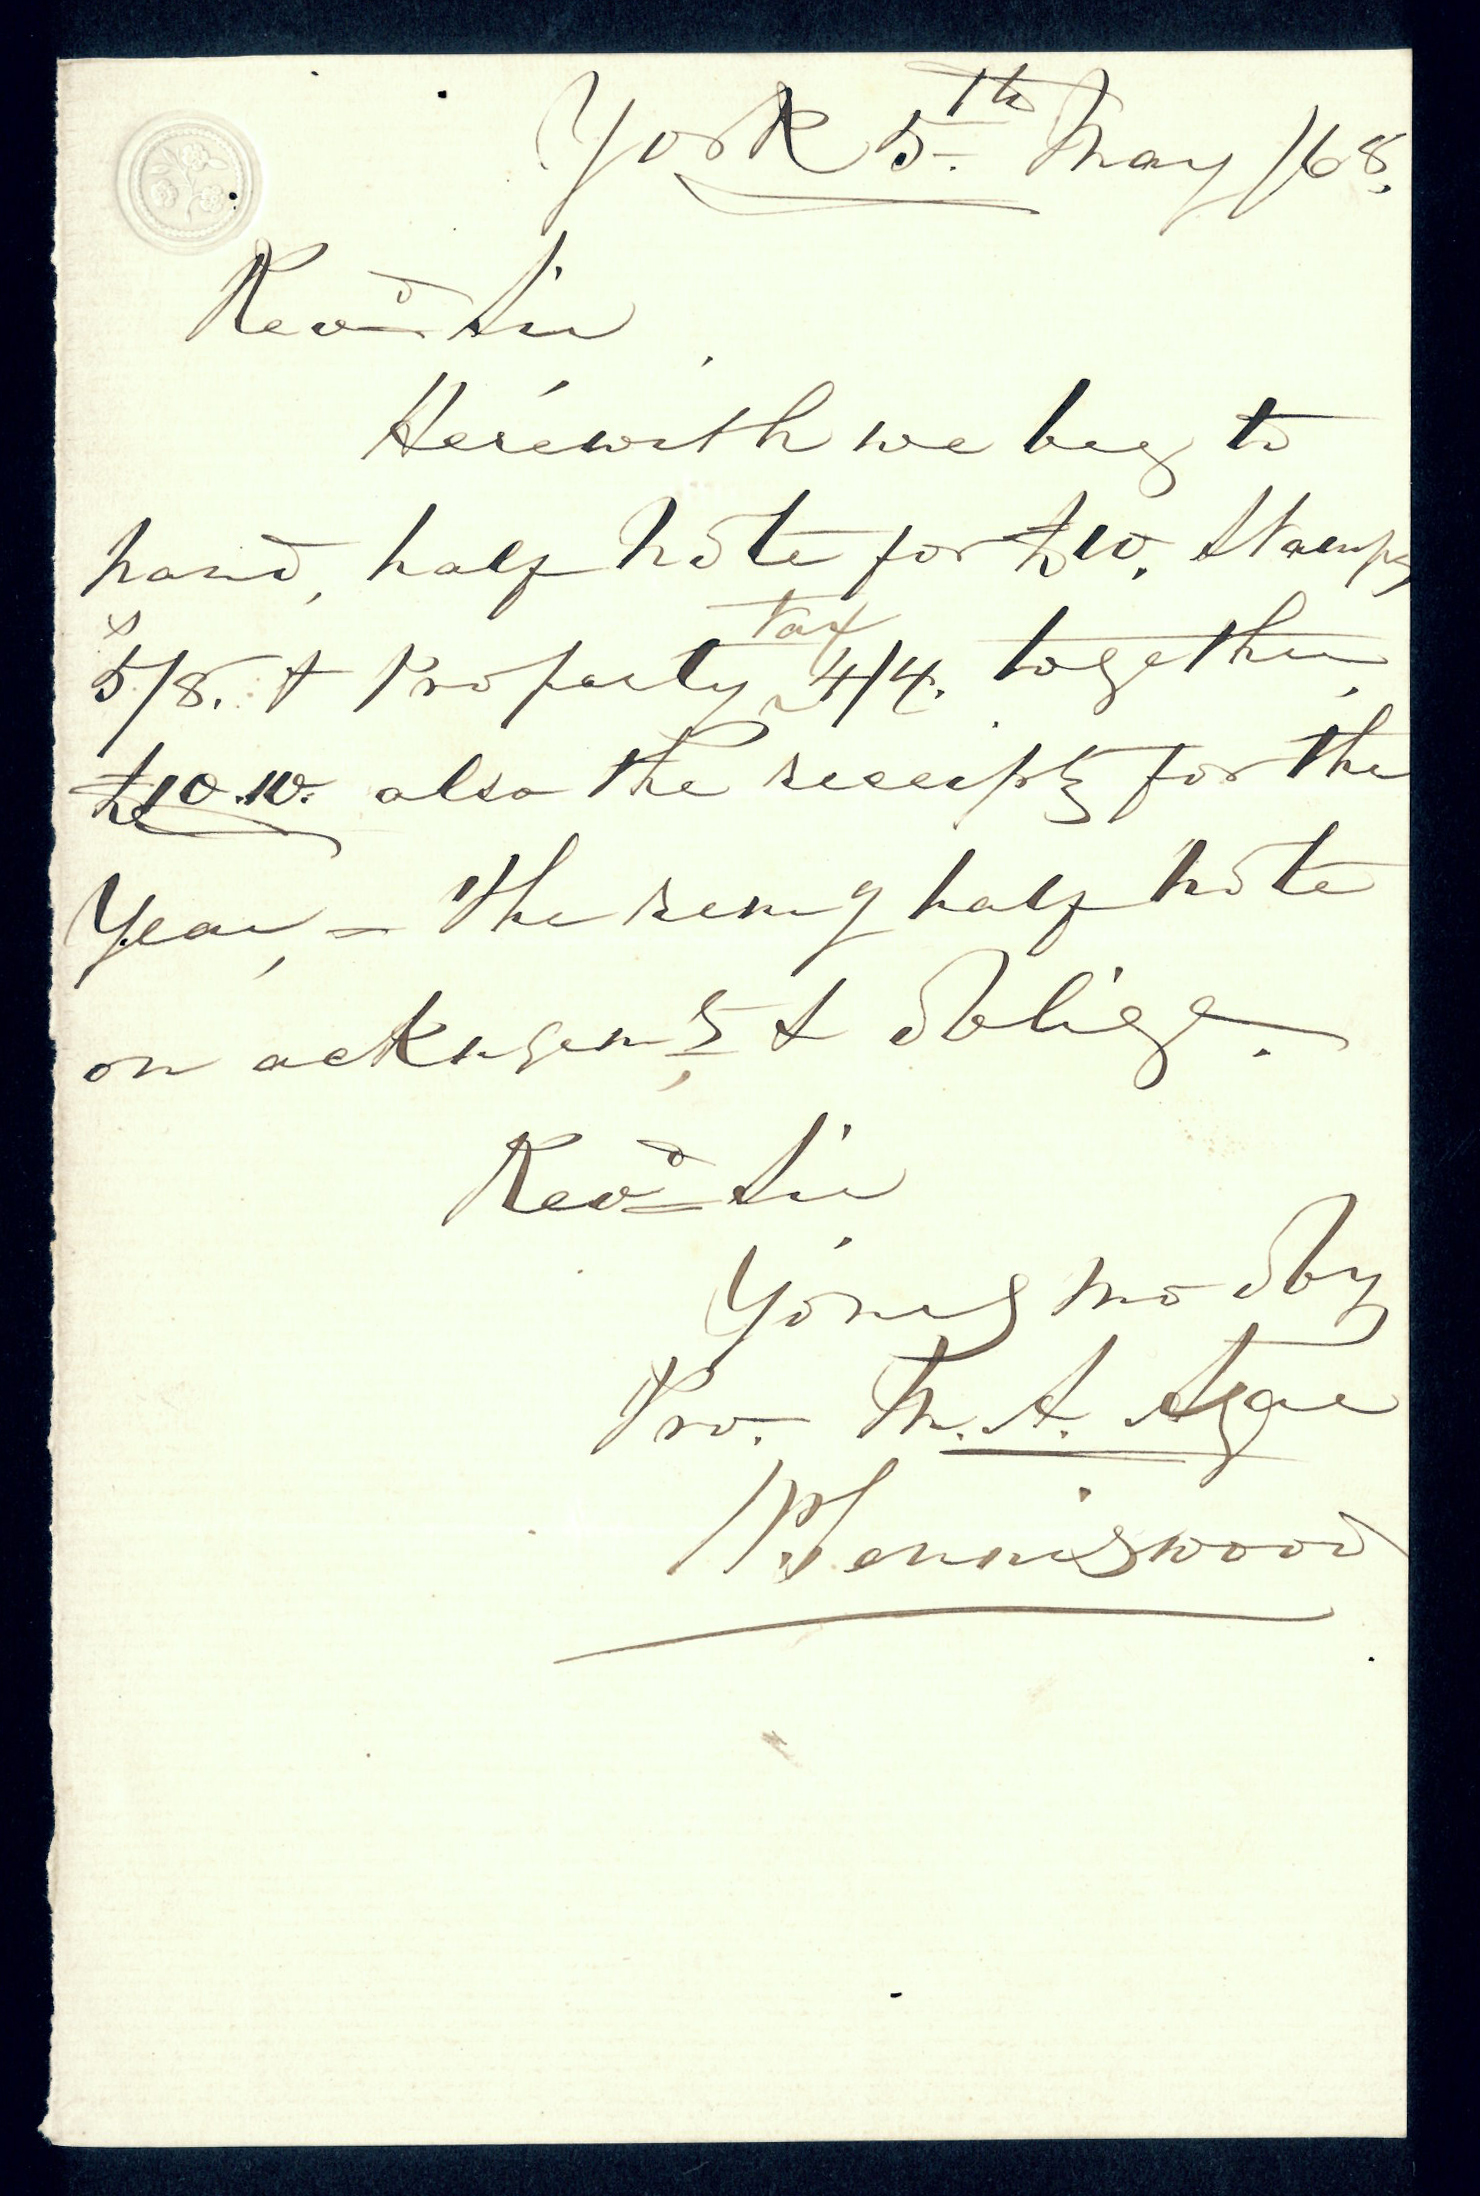 York 5th May /68.
Revd Sir
Herewith we beg to
hand, half Note for £10. Stamps
5/8. & Property tax 4/4. together,
£10.10. also the receipts for the
Year, = The remg half note
on ackngemt & Oblige.
Revd Sir
Yours mo Oby
Pro. M. A. Agar
Penniswood